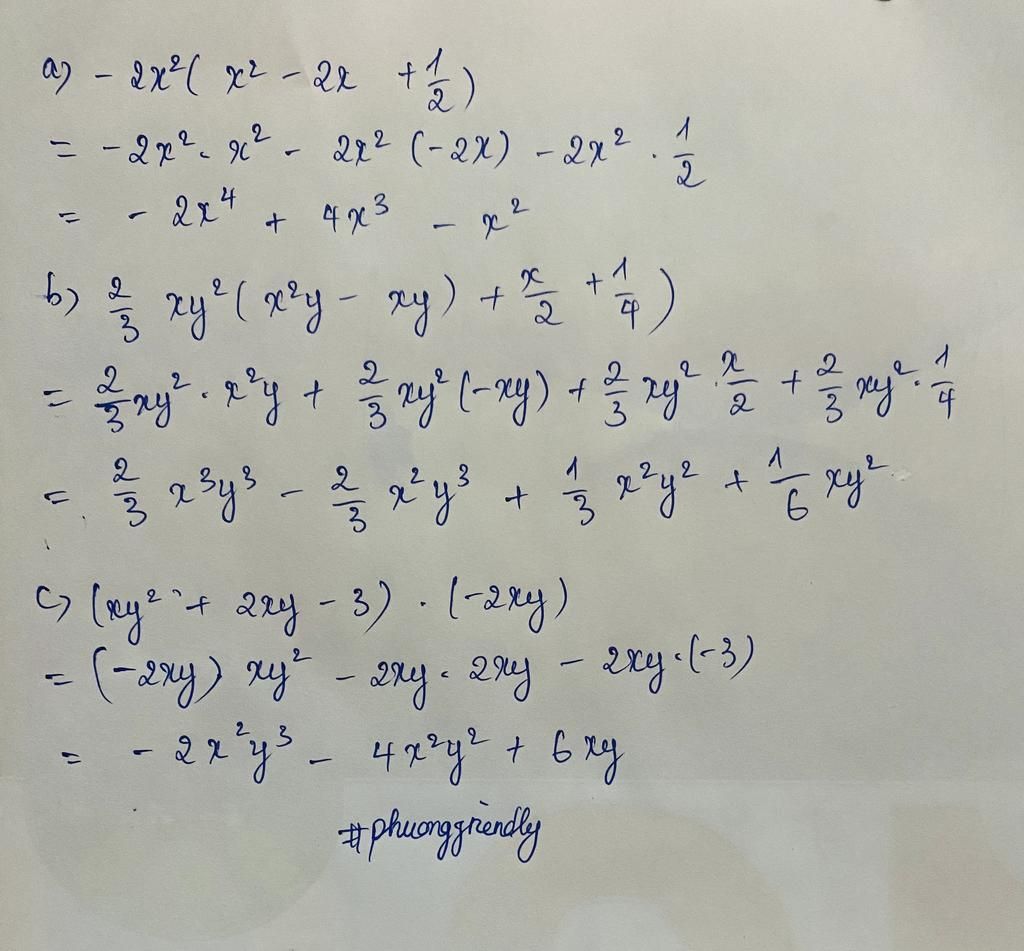 a) - 2x²( x² - 2x + 1/2 )
= - 2x² . x² - 2x² (-2x) - 2x² . 1/2
= - 2x⁴ + 4x³ - x²
b) 2/3 xy² ( x²y - xy ) + x/2 + 1/4 )
= 2/3 xy² . x²y + 2/3 xy² (-xy) + 2/3 xy² . x/2 + 2/3 xy² . 1/4
= 2/3 x³y³ - 2/3 x²y³ + 1/3 x²y² + 1/6 xy²
c) (xy² + 2xy - 3) . (-2xy)
= (-2xy) xy² - 2xy . 2xy - 2xy . (-3)
= - 2x²y³ - 4x²y² + 6xy